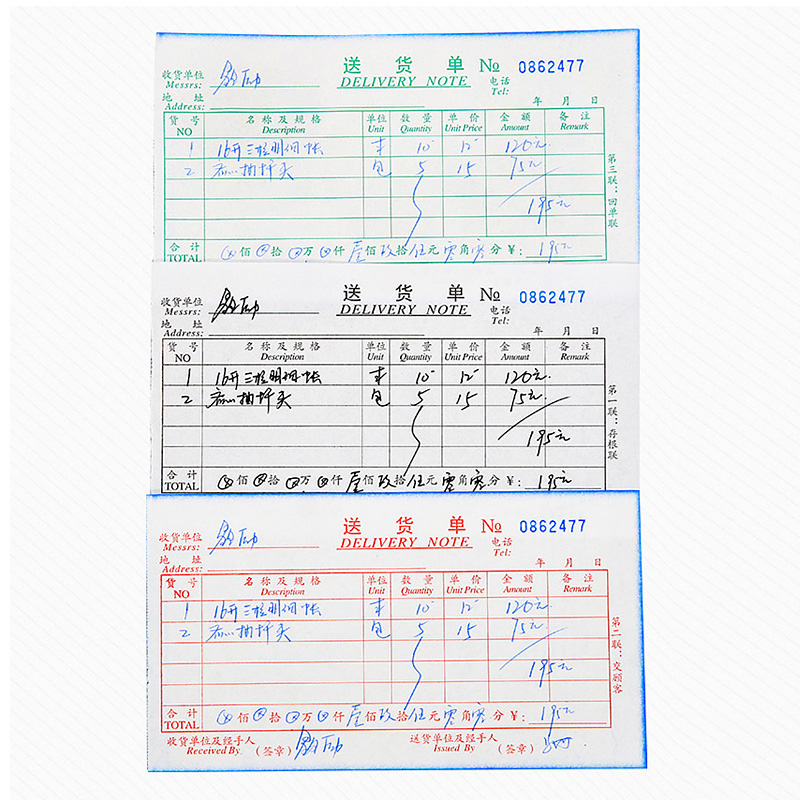 送 货 单 № 0862477
收货单位
Messrs:
DELIVERY NOTE
电话
Tel:
地 址
Address:
年 月 日
货 号 名 称 及 规 格 单位 数 量 单 价 金 额 备 注
NO Description Unit Quantity Unit Price Amount Remark
1 16开三栏明细帐 本 10 12 120元
2 包 5 15 75元
195元
第三联：回单联
合 计 佰 拾 万 仟 壹佰 玖拾 伍元 零角 零分 ¥: 195元
TOTAL
送 货 单 № 0862477
收货单位
Messrs:
DELIVERY NOTE
电话
Tel:
地 址
Address:
年 月 日
货 号 名 称 及 规 格 单位 数 量 单 价 金 额 备 注
NO Description Unit Quantity Unit Price Amount Remark
1 16开三栏明细帐 本 10 12 120元
2 包 5 15 75元
195元
第一联：存根联
合 计 佰 拾 万 仟 壹佰 玖拾 伍元 零角 零分 ¥: 195元
TOTAL
送 货 单 № 0862477
收货单位
Messrs:
DELIVERY NOTE
电话
Tel:
地 址
Address:
年 月 日
货 号 名 称 及 规 格 单位 数 量 单 价 金 额 备 注
NO Description Unit Quantity Unit Price Amount Remark
1 16开三栏明细帐 本 10 12 120元
2 包 5 15 75元
195元
第二联：交顾客
合 计 佰 拾 万 仟 壹佰 玖拾 伍元 零角 零分 ¥: 195元
TOTAL
收货单位及经手人 (签章) 送货单位及经手人 (签章)
Received By. Issued By